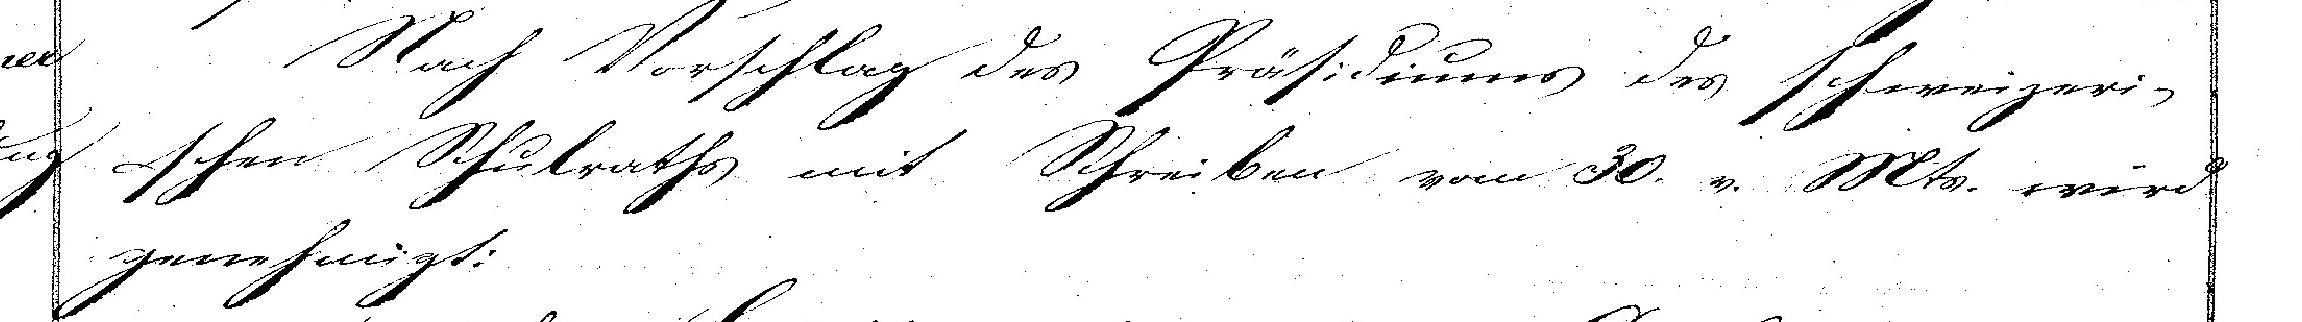 Nach Vorschlag des Präsidiums des schweizeri-
schen Schulraths mit Schreiben vom 30. v. Mts. wird
genehmigt: